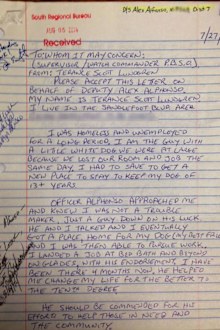 D/S Alex Alfonso, Dist 7
South Regional Bureau
7/27/
FEB 05
Received
TO WHOM IT MAY CONCERN:
(SUPERVISOR/WATCH COMMANDER P.B.S.O.)
FROM: TERANCE SCOT LUNDGREN
PLEASE ACCEPT THIS LETTER ON
BEHALF OF DEPUTY ALEX ALPHONSO,
MY NAME IS TERANCE SCOT LUNDGREN
I LIVE IN THE SANDLEFOOT BLVD AREA.
I WAS HOMELESS AND UNEMPLOYED
FOR A LONG PERIOD, I AM THE GUY WITH
A LITTLE WHITE DOG WE WERE AT LARGE
BECAUSE WE LOST OUR ROOM AND JOB THE
SAME DAY, I HAD TO SAVE TO GET A
NEW PLACE TO STAY TO KEEP MY DOG OF
13+ YEARS
OFFICER ALPHONSO APPROACHED ME
AND KNEW I WAS NOT A TROUBLE
MAKER, JUST A GUY DOWN ON HIS LUCK.
HE AND I TALKED AND I EVENTUALLY
GOT A PLACE, HOME FOR MY DOG (MY
AND I WAS THEN ABLE TO PURSUE WORK.
I LANDED A JOB AT BED BATH AND BEYOND
ON GLADES, WITH HIS ENDORSEMENT, I HAVE
BEEN THERE 4 MONTHS NOW, HE HELPED
ME CHANGE MY LIFE FOR THE BETTER TO
THE TENTH DEGREE
HE SHOULD BE COMMENDED FOR HIS
EFFORT TO HELP THOSE IN NEED AND
THE COMMUNITY.